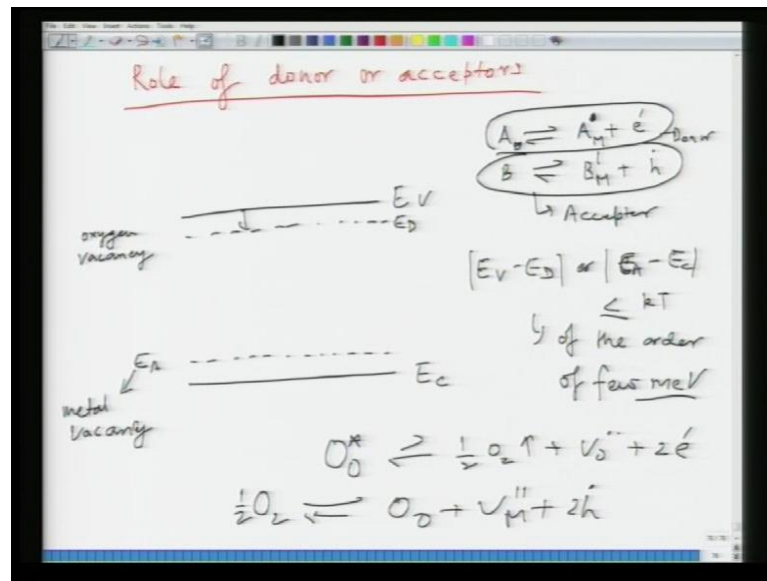 File Edit View Insert Actions Tools Help
Role of donor or acceptors
A ⇌ A_M^• + e' → Donor
B ⇌ B_M' + h^•
↳ Acceptor
E_V
E_D
oxygen vacancy
|E_V - E_D| or |E_A - E_C|
≤ kT
↳ of the order
of few meV
E_A
E_C
metal vacancy
O_O^x ⇌ ½ O_2 ↑ + V_O^•• + 2e'
½O_2 ⇌ O_O + V_M'' + 2h^•